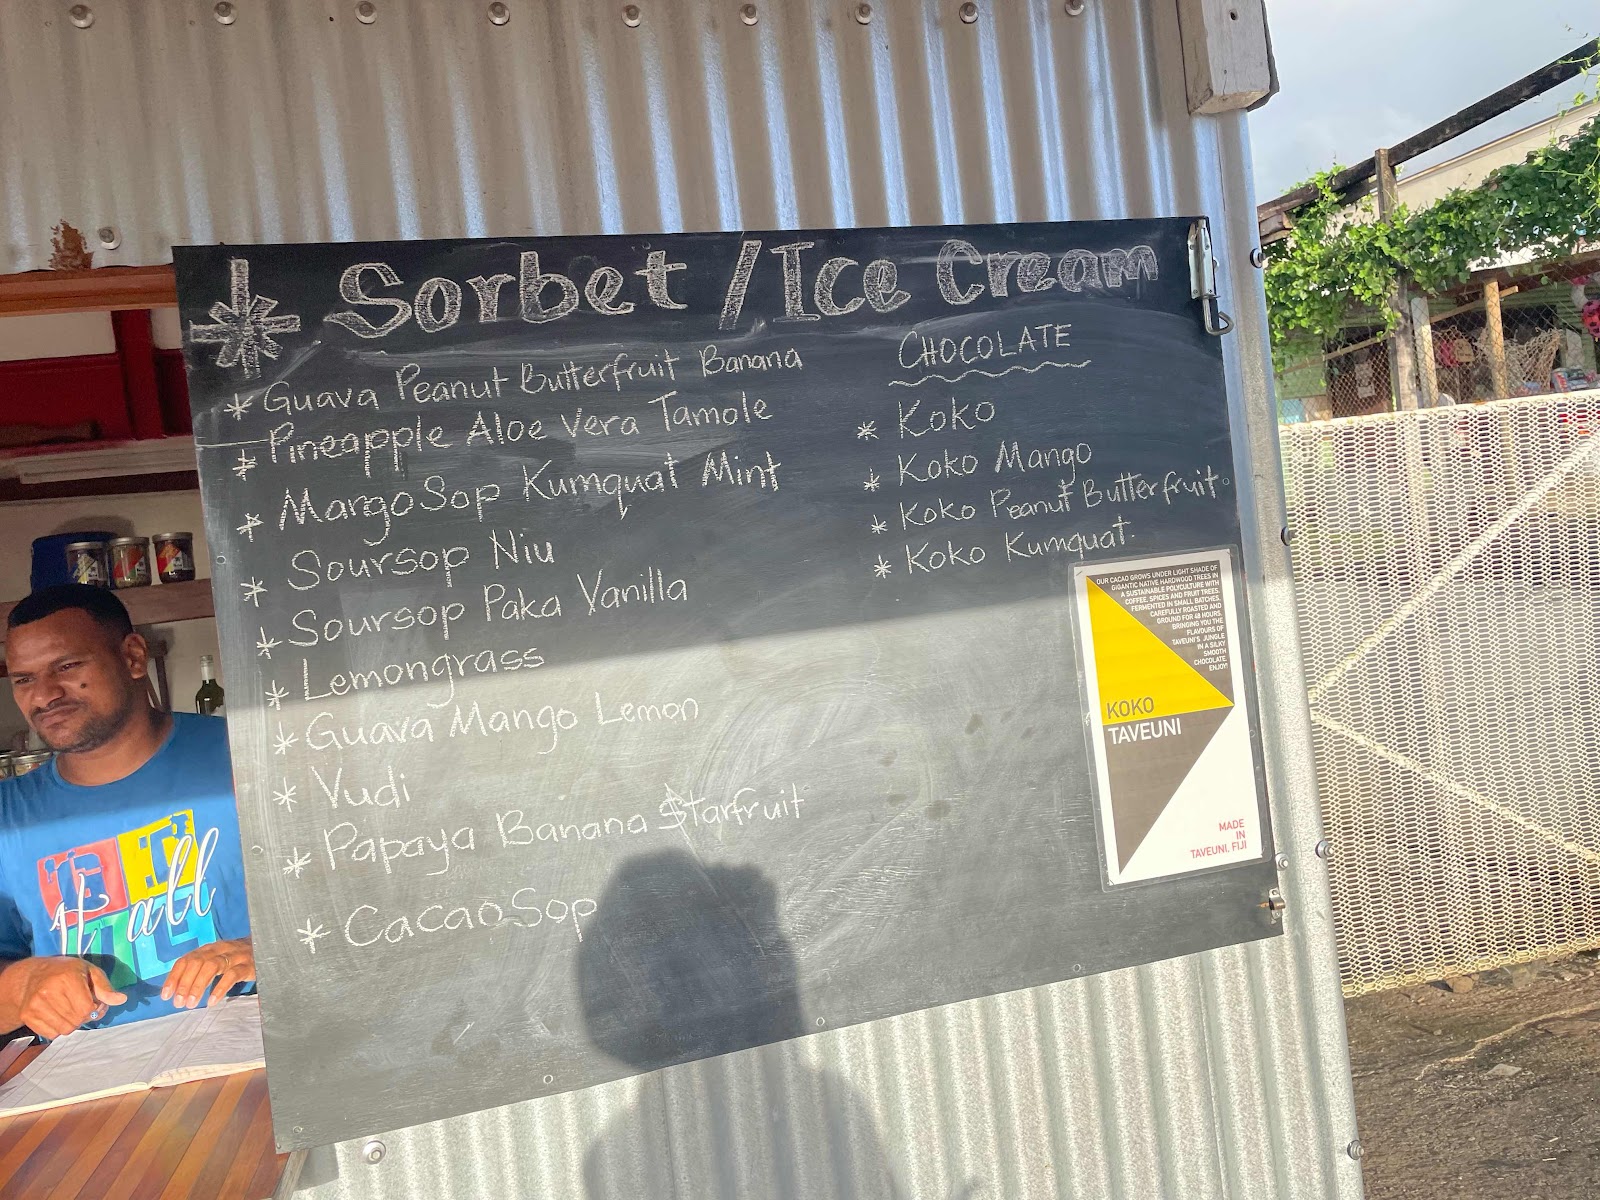 * Sorbet / Ice Cream
* Guava Peanut Butterfruit Banana
* Pineapple Aloe Vera Tamole
* MargoSop Kumquat Mint
* Soursop Niu
* Soursop Paka Vanilla
* Lemongrass
* Guava Mango Lemon
* Vudi
* Papaya Banana Starfruit
* CacaoSop
CHOCOLATE
* Koko
* Koko Mango
* Koko Peanut Butterfruit
* Koko Kumquat
OUR CACAO GROWS UNDER LIGHT SHADE OF
GIGANTIC NATIVE HARDWOOD TREES IN
A SUSTAINABLE POLYCULTURE WITH
COFFEE, SPICES AND FRUIT TREES.
FERMENTED IN SMALL BATCHES,
CAREFULLY ROASTED AND
GROUND FOR 48 HOURS,
BRINGING YOU THE
FLAVOURS OF
TAVEUNI'S JUNGLE
IN A SILKY
SMOOTH
CHOCOLATE.
ENJOY!
KOKO
TAVEUNI
MADE
IN
TAVEUNI, FIJI
it all